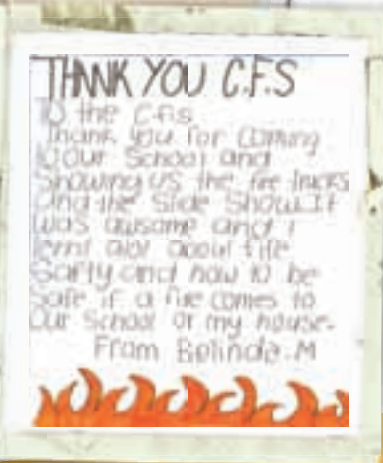 THANK YOU C.F.S
To the C.F.S
Thank you for coming
to our School and
Showing us the fire trucks
and the Slide Show It
was awsome and I
lernt alot about fire
Safty and how to be
Safe if a fire comes to
Our School or my house.
From Belinda.M